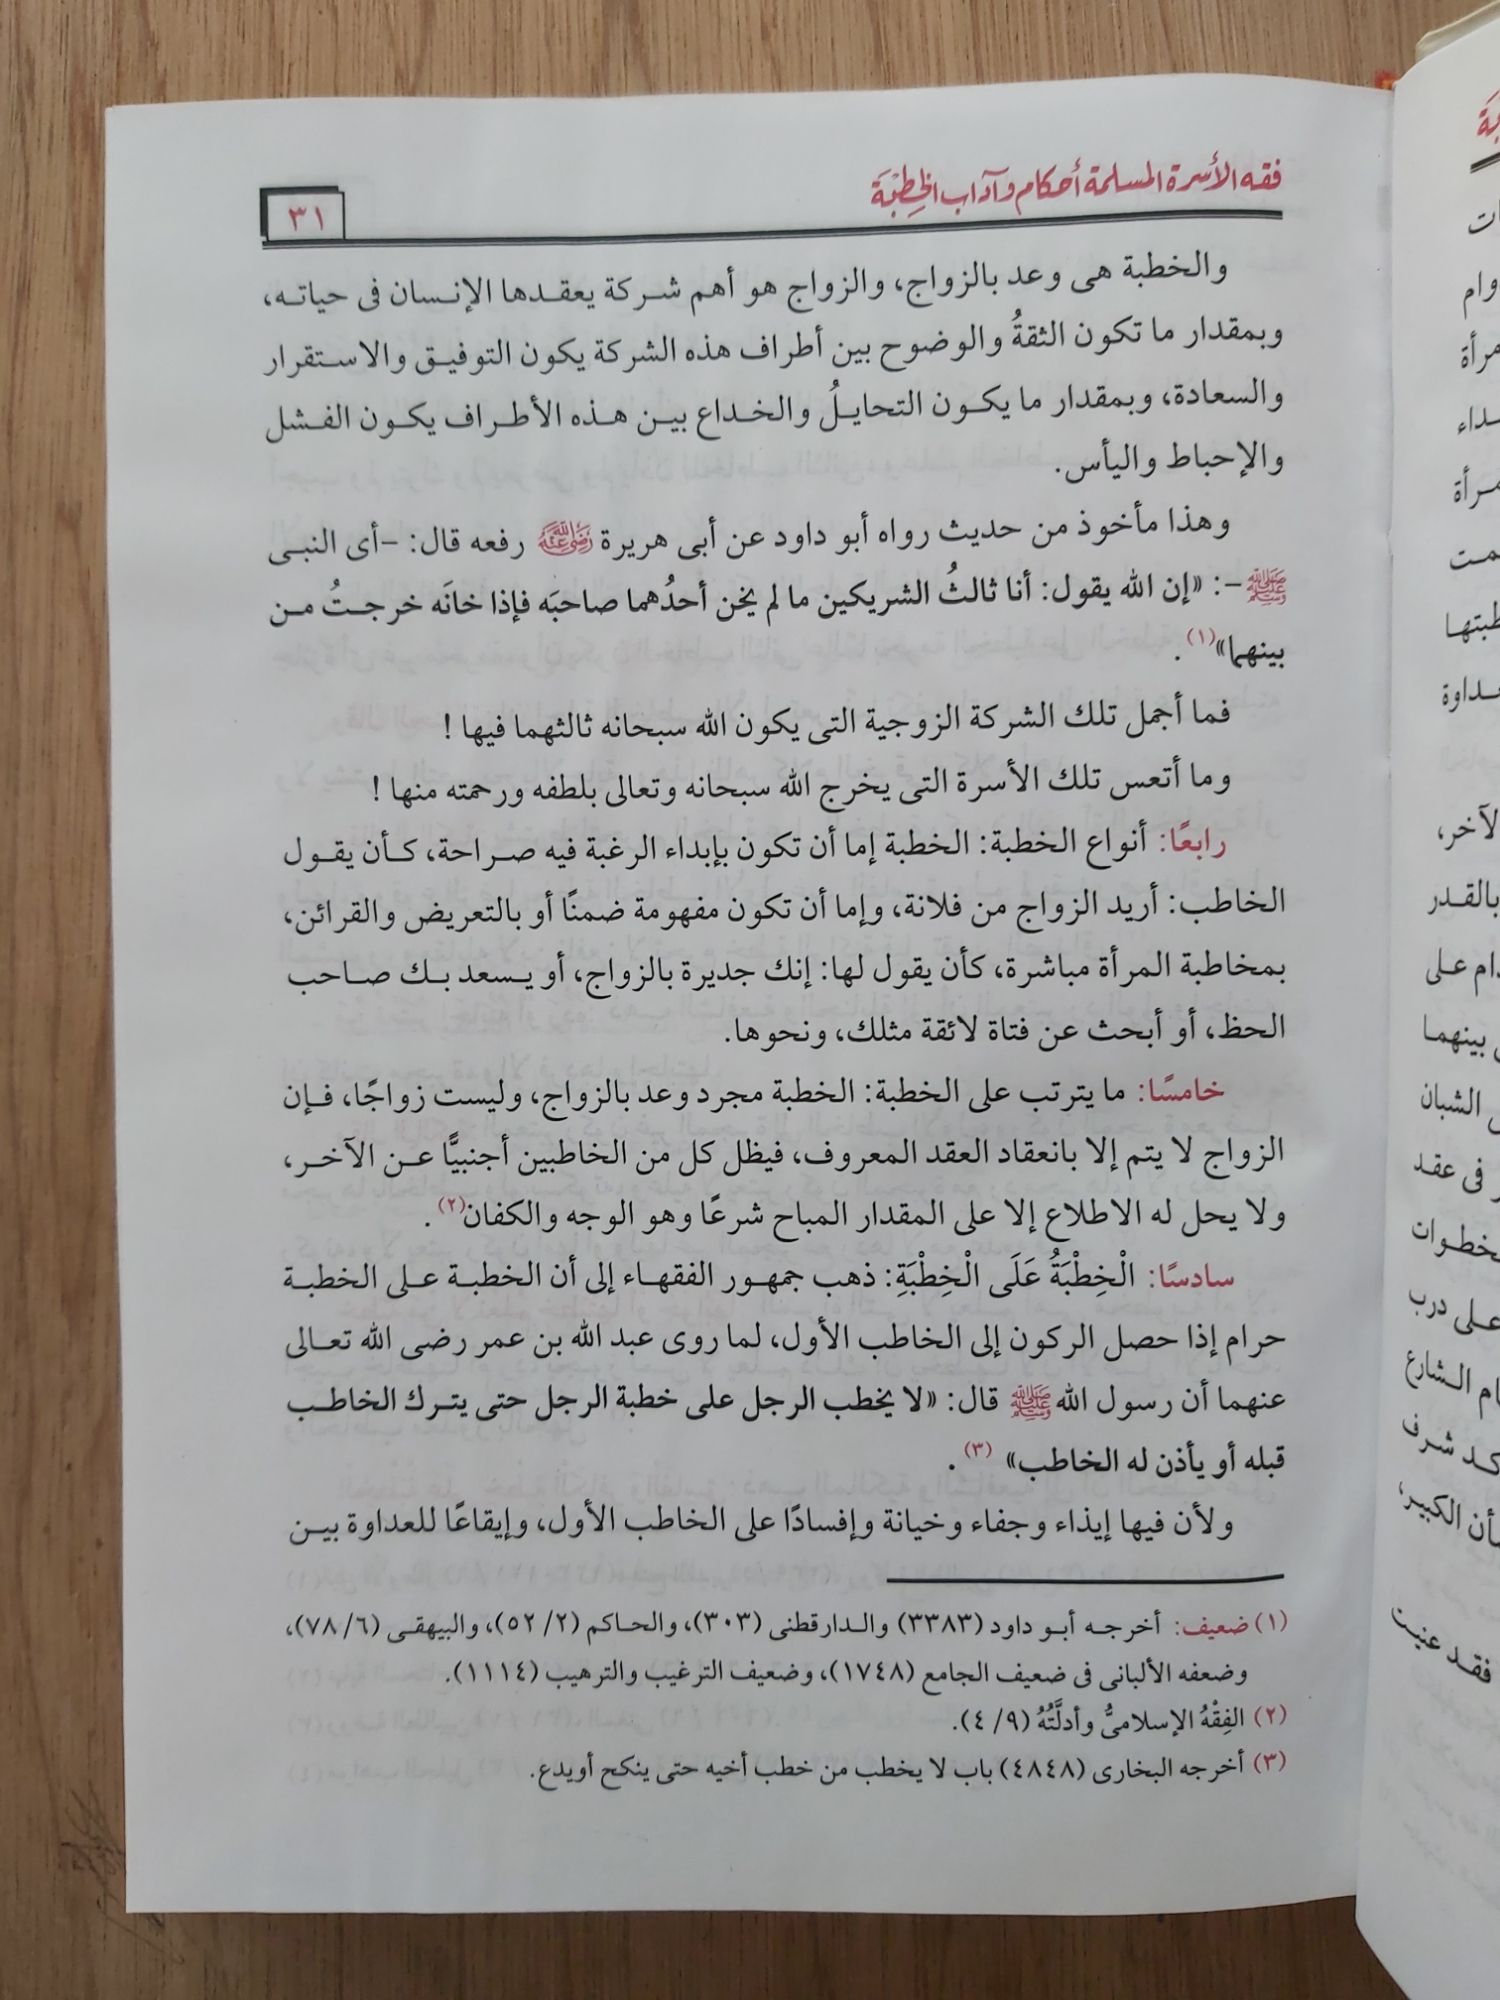 فقه الأسرة المسلمة أحكام وآداب الخِطبَة
٣١
والخطبة هى وعد بالزواج، والزواج هو أهم شركة يعقدها الإنسان فى حياته،
وبمقدار ما تكون الثقةُ والوضوح بين أطراف هذه الشركة يكون التوفيق والاستقرار
والسعادة، وبمقدار ما يكون التحايلُ والخداع بين هذه الأطراف يكون الفشل
والإحباط واليأس.
وهذا مأخوذ من حديث رواه أبو داود عن أبى هريرة رضي الله عنه رفعه قال: -أى النبى
ﷺ-: «إن الله يقول: أنا ثالثُ الشريكين ما لم يخن أحدُهما صاحبَه فإذا خانَه خرجتُ من
بينهما»(١).
فما أجمل تلك الشركة الزوجية التى يكون الله سبحانه ثالثهما فيها !
وما أتعس تلك الأسرة التى يخرج الله سبحانه وتعالى بلطفه ورحمته منها !
رابعًا: أنواع الخطبة: الخطبة إما أن تكون بإبداء الرغبة فيه صراحة، كأن يقول
الخاطب: أريد الزواج من فلانة، وإما أن تكون مفهومة ضمنًا أو بالتعريض والقرائن،
بمخاطبة المرأة مباشرة، كأن يقول لها: إنك جديرة بالزواج، أو يسعد بك صاحب
الحظ، أو أبحث عن فتاة لائقة مثلك، ونحوها.
خامسًا: ما يترتب على الخطبة: الخطبة مجرد وعد بالزواج، وليست زواجًا، فإن
الزواج لا يتم إلا بانعقاد العقد المعروف، فيظل كل من الخاطبين أجنبيًّا عن الآخر،
ولا يحل له الاطلاع إلا على المقدار المباح شرعًا وهو الوجه والكفان(٢).
سادسًا: الْخِطْبَةُ عَلَى الْخِطْبَةِ: ذهب جمهور الفقهاء إلى أن الخطبة على الخطبة
حرام إذا حصل الركون إلى الخاطب الأول، لما روى عبد الله بن عمر رضى الله تعالى
عنهما أن رسول الله ﷺ قال: «لا يخطب الرجل على خطبة الرجل حتى يترك الخاطب
قبله أو يأذن له الخاطب» (٣).
ولأن فيها إيذاء وجفاء وخيانة وإفسادًا على الخاطب الأول، وإيقاعًا للعداوة بين
(١) ضعيف: أخرجه أبو داود (٣٣٨٣) والدارقطنى (٣٠٣)، والحاكم (٢/ ٥٢)، والبيهقى (٦/ ٧٨)،
وضعفه الألبانى فى ضعيف الجامع (١٧٤٨)، وضعيف الترغيب والترهيب (١١١٤).
(٢) الفِقْهُ الإسلامىُّ وأدلَّتُهُ (٩/ ٤).
(٣) أخرجه البخارى (٤٨٤٨) باب لا يخطب من خطب أخيه حتى ينكح أويدع.